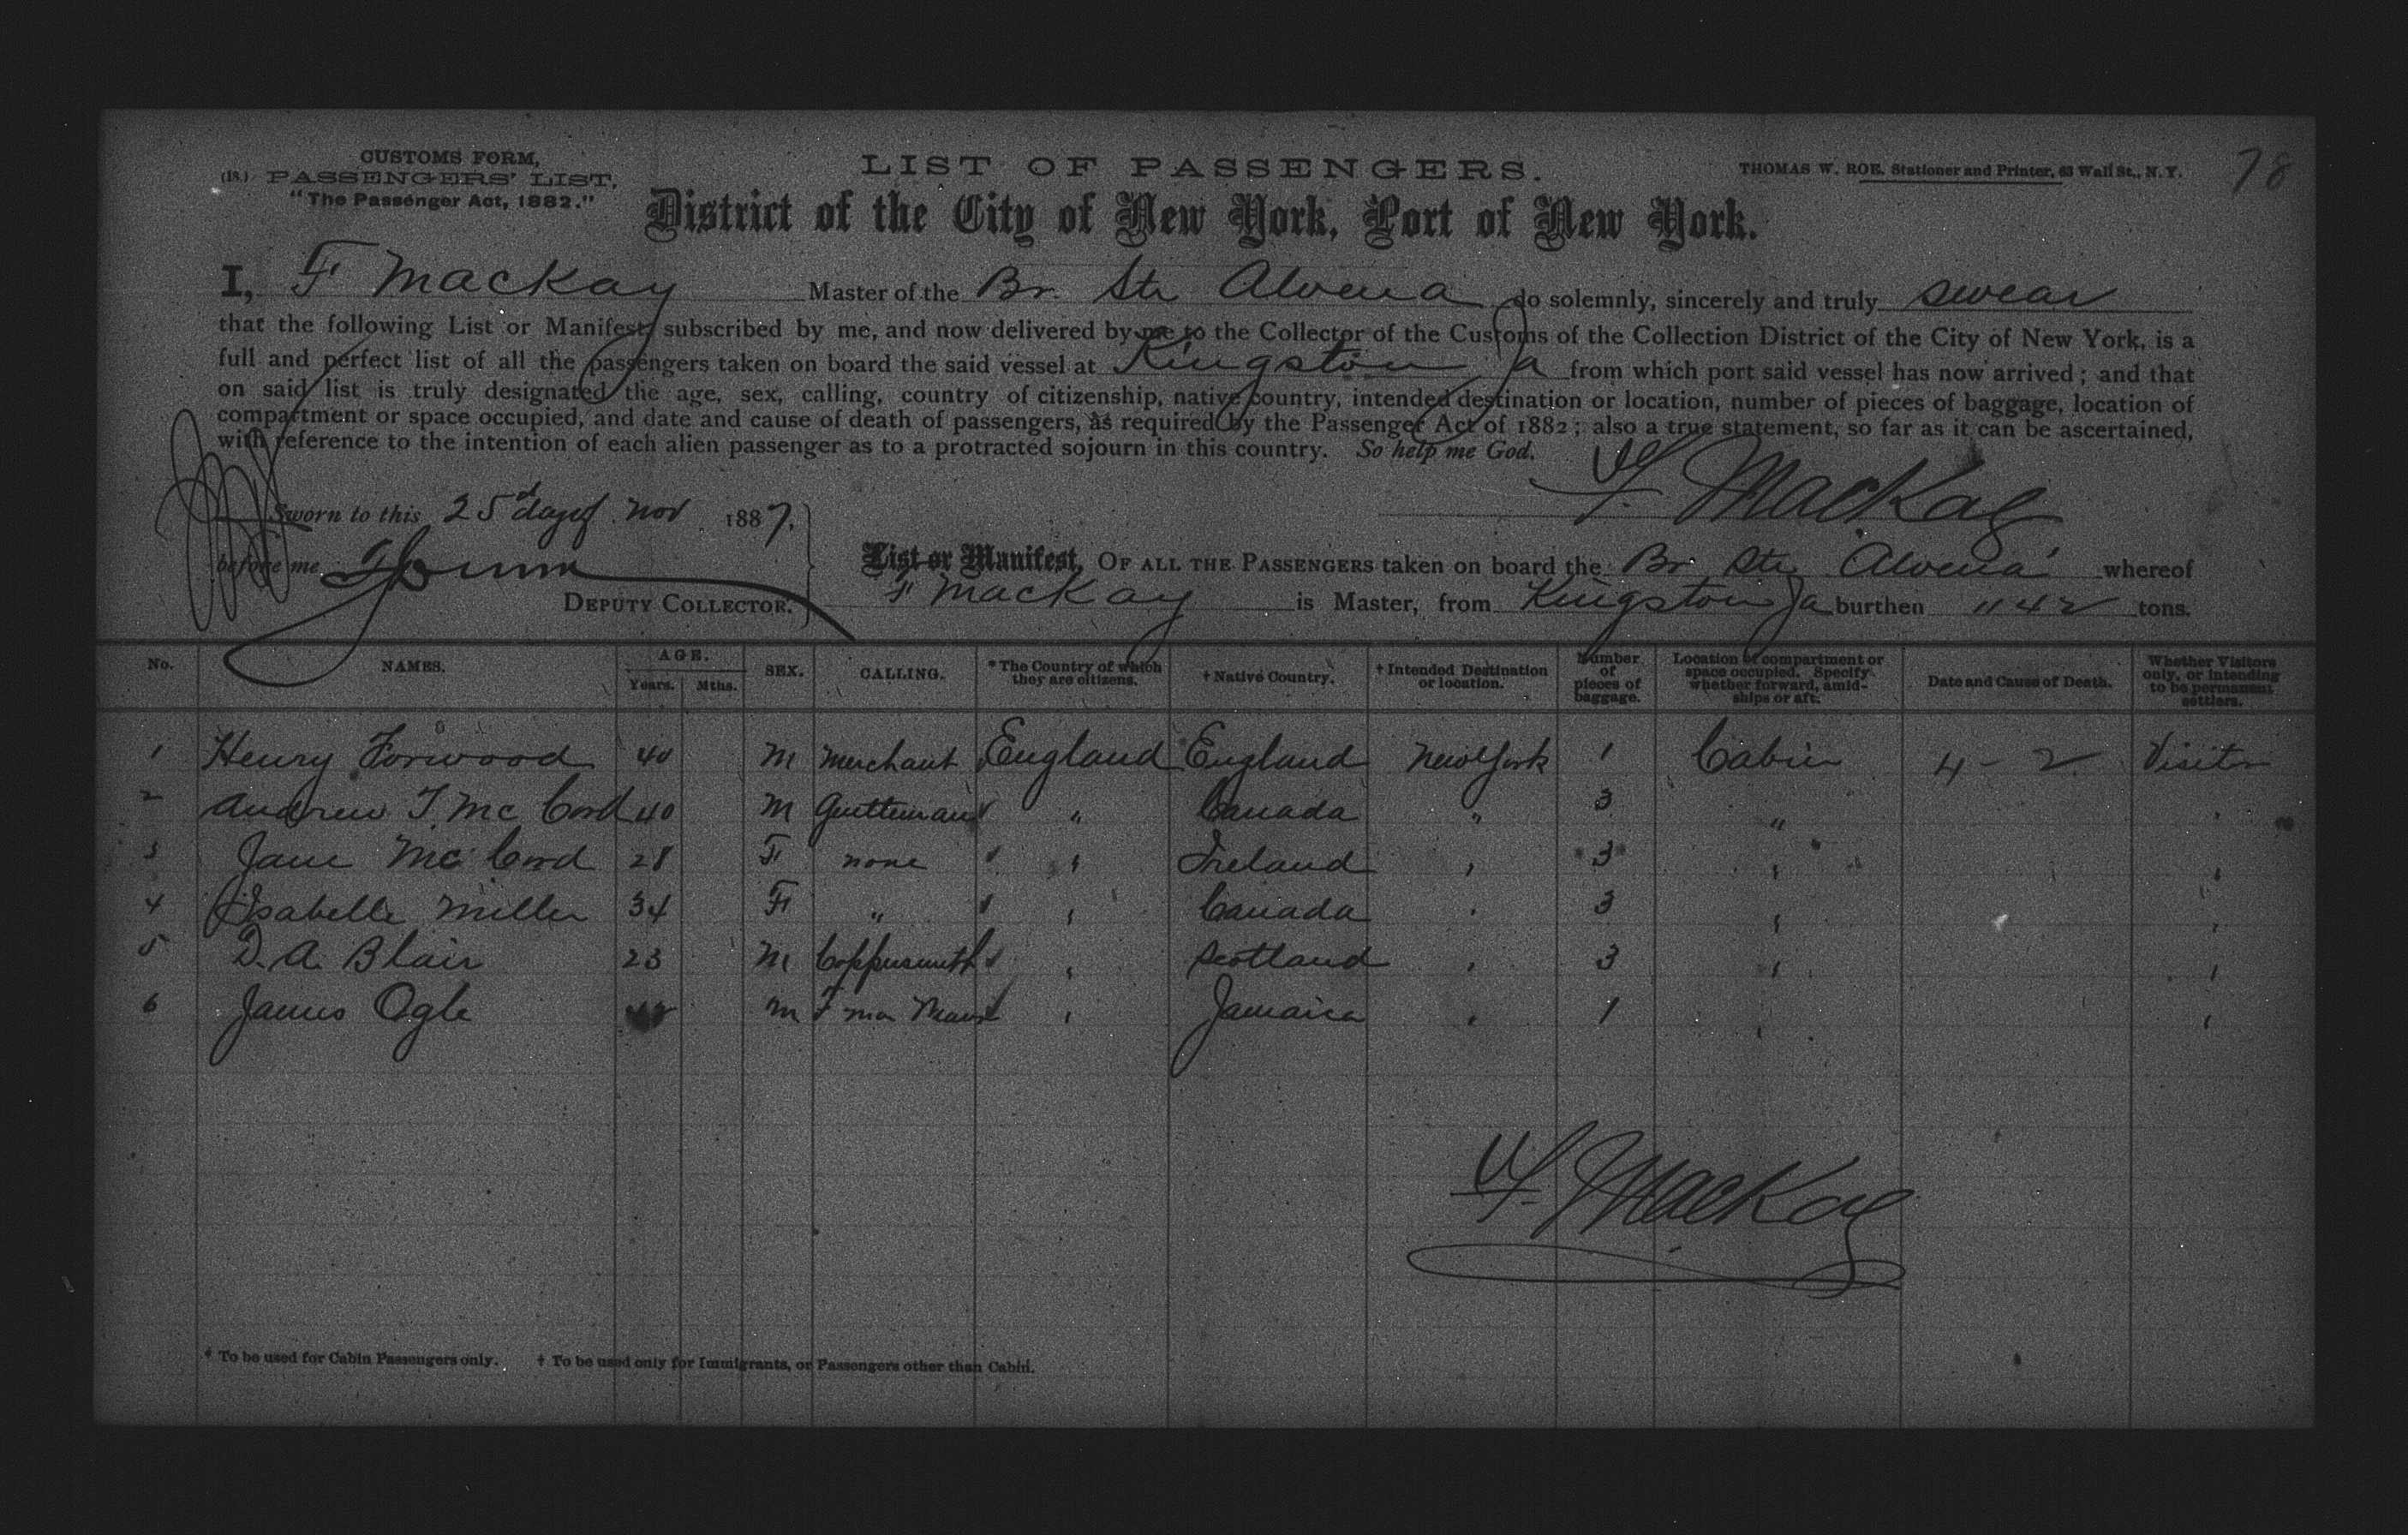 CUSTOMS FORM,
(18.) PASSENGERS' LIST,
"The Passenger Act, 1882."
LIST OF PASSENGERS.
THOMAS W. ROE, Stationer and Printer, 63 Wall St., N.Y.
78
District of the City of New York, Port of New York.
I, F Mackay Master of the Br. Str Alvena do solemnly, sincerely and truly swear
that the following List or Manifest, subscribed by me, and now delivered by me to the Collector of the Customs of the Collection District of the City of New York, is a
full and perfect list of all the passengers taken on board the said vessel at Kingston Ja from which port said vessel has now arrived; and that
on said list is truly designated the age, sex, calling, country of citizenship, native country, intended destination or location, number of pieces of baggage, location of
compartment or space occupied, and date and cause of death of passengers, as required by the Passenger Act of 1882; also a true statement, so far as it can be ascertained,
with reference to the intention of each alien passenger as to a protracted sojourn in this country. So help me God.
F. Mackay
Sworn to this 25 day of Nov 1887,
before me
DEPUTY COLLECTOR.
List or Manifest, OF ALL THE PASSENGERS taken on board the Br Str Alvena whereof
F Mackay is Master, from Kingston Ja burthen 1142 tons.
No. NAMES. AGE. Years. Mths. SEX. CALLING. *The Country of which they are citizens. †Native Country. †Intended Destination or location. Number of pieces of baggage. Location of compartment or space occupied. Specify whether forward, amidships or aft. Date and Cause of Death. Whether Visitors only, or intending to be permanent settlers.
1 Henry Forwood 40 M Merchant England England New York 1 Cabin 4 - 2 Visitor
2 Andrew T. Mc Cord 40 M Gentleman " Canada " 3 "
3 Jane Mc Cord 28 F none " Ireland " 3 " "
4 Isabelle Miller 34 F " " Canada " 3 " "
5 D. A. Blair 23 M Coppersmith " Scotland " 3 " "
6 James Ogle M " Jamaica " 1 " "
F. Mackay
* To be used for Cabin Passengers only. † To be used only for Immigrants, or Passengers other than Cabin.